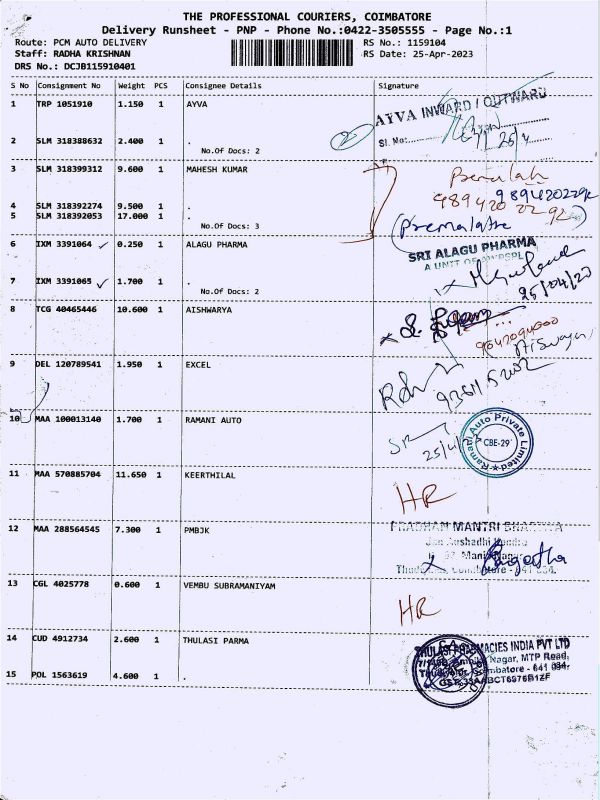 THE PROFESSIONAL COURIERS, COIMBATORE
Delivery Runsheet - PNP - Phone No.:0422-3505555 - Page No.:1
Route: PCM AUTO DELIVERY RS No.: 1159104
Staff: RADHA KRISHNAN RS Date: 25-Apr-2023
DRS No.: DCJB115910401
S No Consignment No Weight PCS Consignee Details Signature
1 TRP 1051910 1.150 1 AYVA
AYVA INWARD / OUTWARD
Sl. No:
2 SLM 318388632 2.400 1 .
No.Of Docs: 2
3 SLM 318399312 9.600 1 MAHESH KUMAR
4 SLM 318392274 9.500 1
5 SLM 318392053 17.000 1 .
No.Of Docs: 3
6 IXM 3391064 0.250 1 ALAGU PHARMA
SRI ALAGU PHARMA
7 IXM 3391065 1.700 1 .
No.Of Docs: 2
25/04/23
8 TCG 40465446 10.600 1 AISHWARYA
9 DEL 120789541 1.950 1 EXCEL
10 MAA 100013140 1.700 1 RAMANI AUTO
Ramani Auto Private Limited
CBE-29
11 MAA 570885704 11.650 1 KEERTHILAL
HR
12 MAA 288564545 7.300 1 PMBJK
PRADHAN MANTRI
13 CGL 4025778 0.600 1 VEMBU SUBRAMANIYAM
HR
14 CUD 4912734 2.600 1 THULASI PARMA
THULASI PHARMACIES INDIA PVT LTD
Nagar, MTP Road,
15 POL 1563619 4.600 1 .